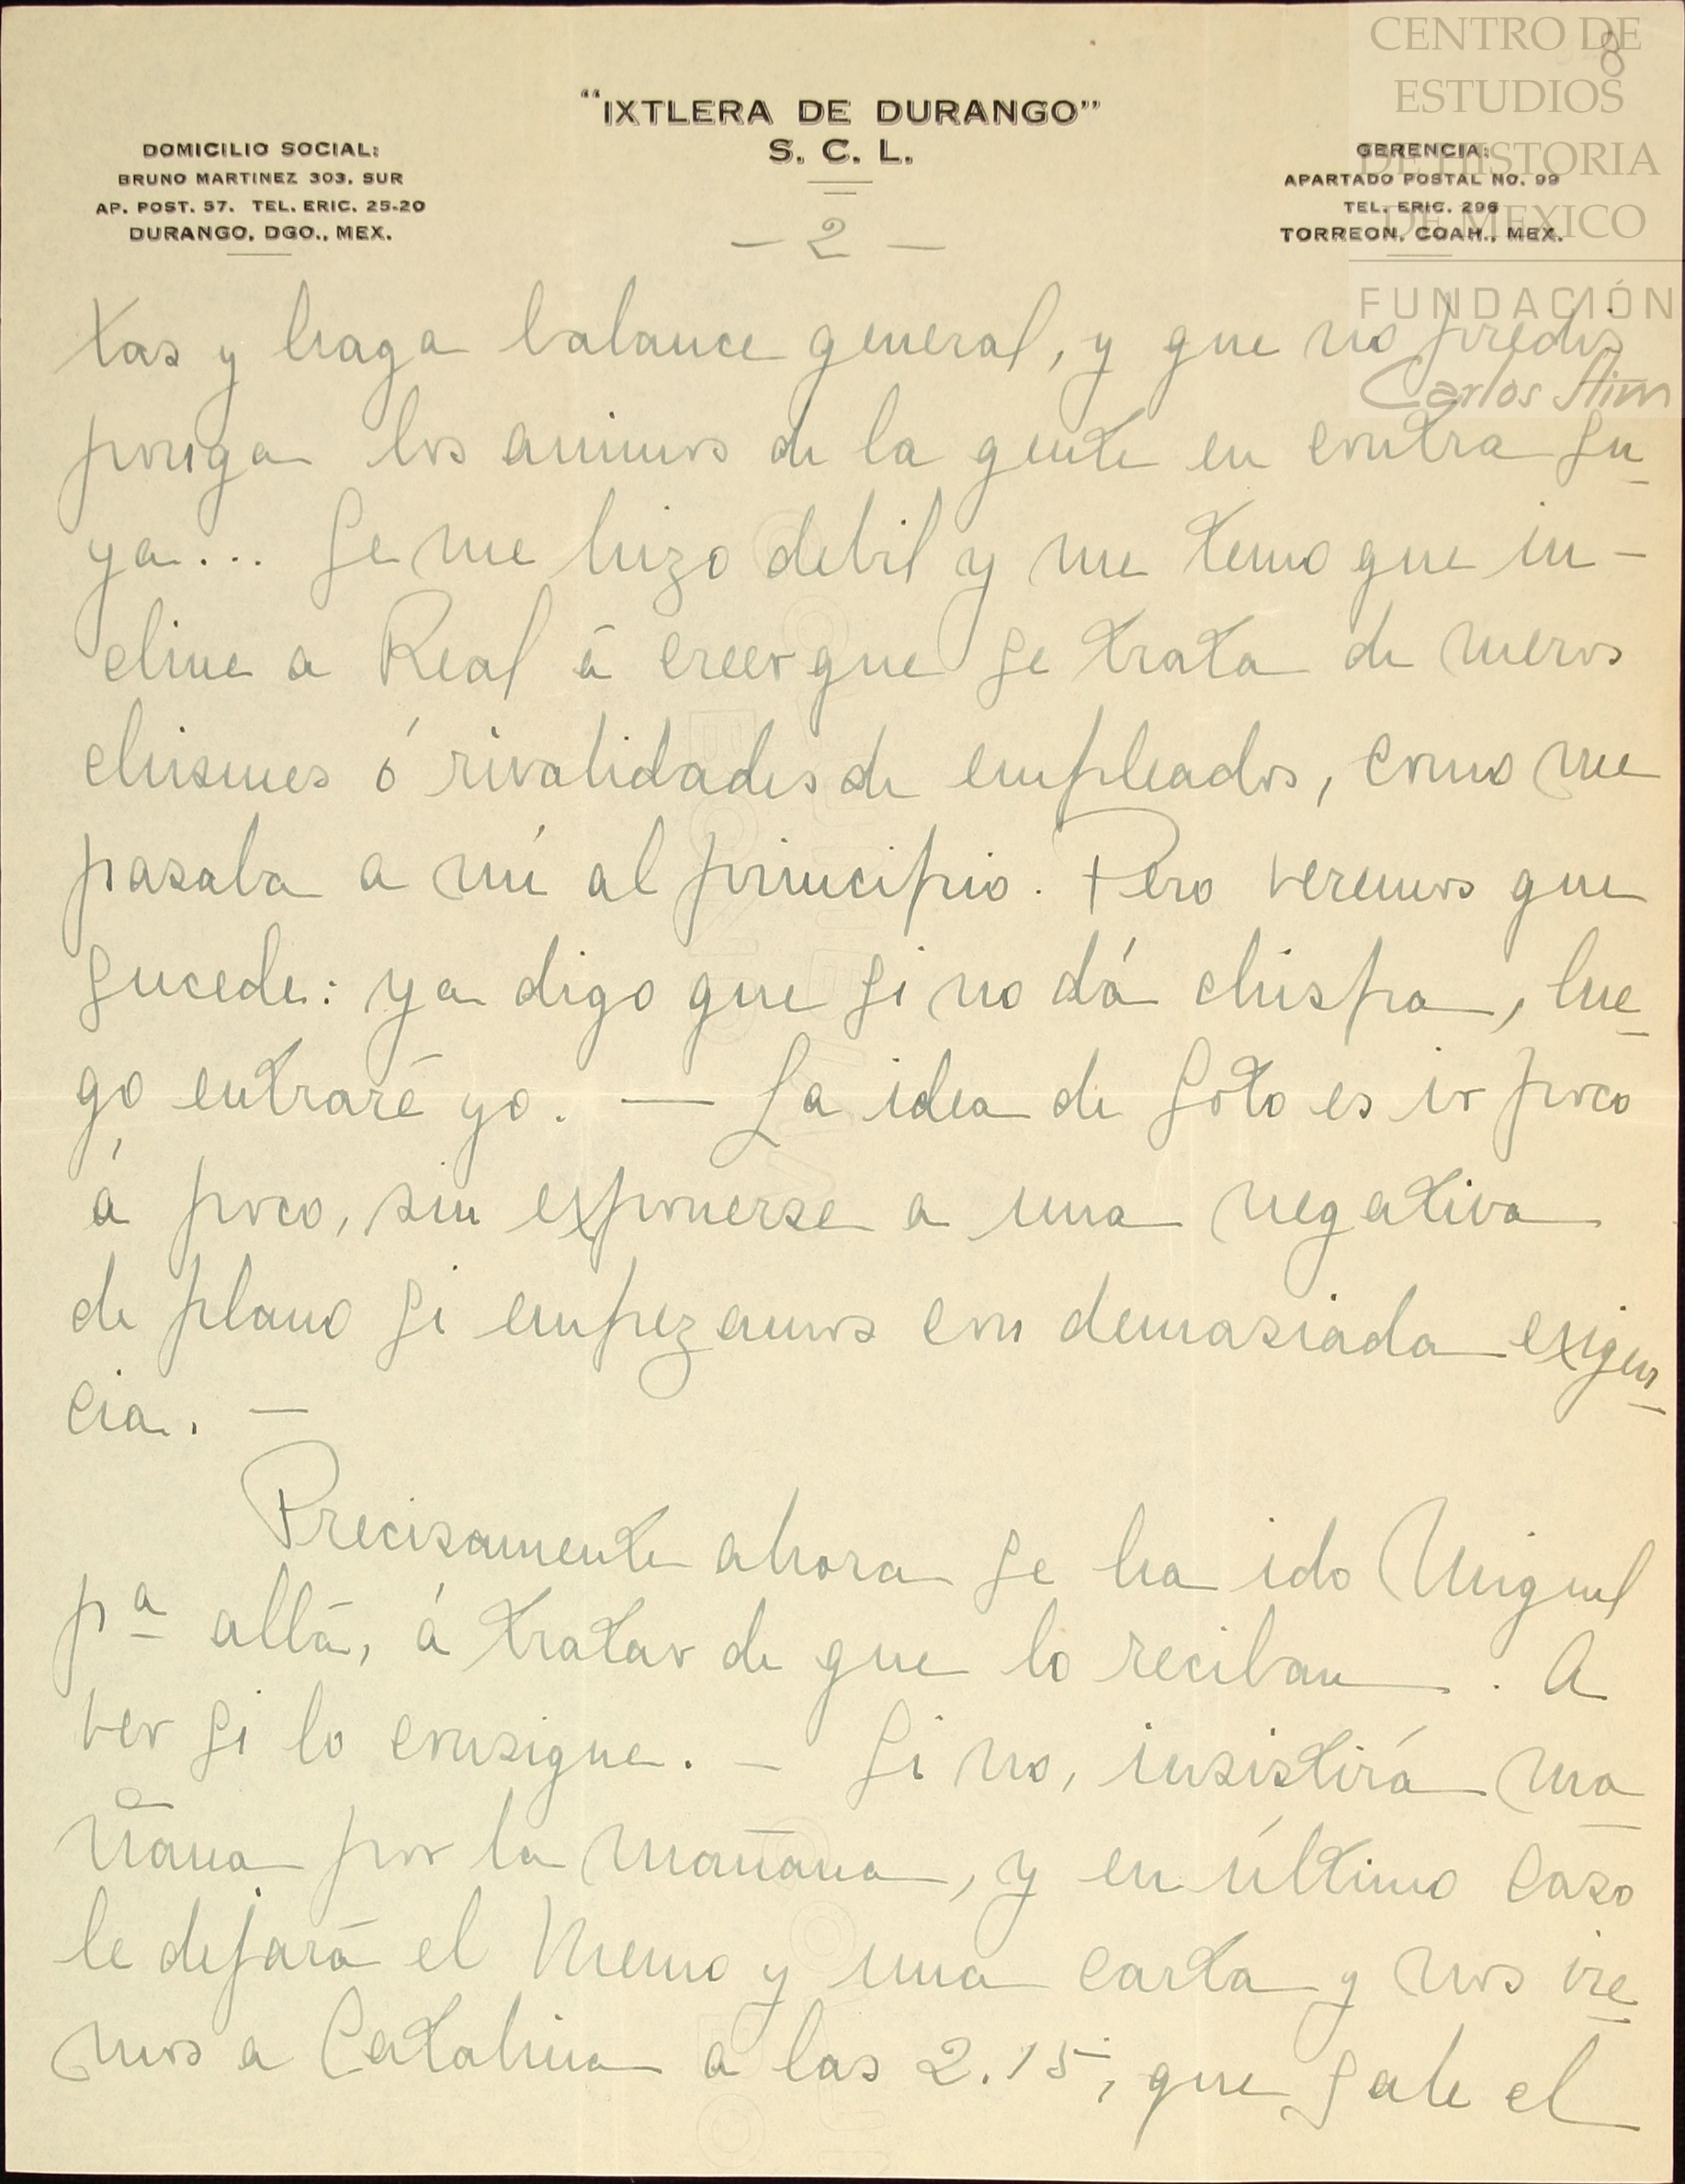 CENTRO DE
ESTUDIOS
DE HISTORIA
DE MEXICO
FUNDACIÓN
Carlos Slim
8
"IXTLERA DE DURANGO"
S. C. L.
DOMICILIO SOCIAL:
BRUNO MARTINEZ 303. SUR
AP. POST. 57. TEL. ERIC. 25-20
DURANGO, DGO., MEX.
GERENCIA:
APARTADO POSTAL NO. 99
TEL. ERIC. 296
TORREON, COAH., MEX.
— 2 —
tas y haga balance general, y que no predis
ponga los animos de la gente en contra su
ya... Se me hizo debil y me temo que in-
cline a Real á creer que se trata de meros
chismes ó rivalidades de empleados, como me
pasaba a mí al principio. Pero veremos que
sucede: ya digo que si no dá chispa, lue
go entraré yo. — La idea de Soto es ir poco
á poco, sin exponerse a una negativa
de plano si empezamos con demasiada exigen
cia. —
Precisamente ahora se ha ido Miguel
pª allá, á tratar de que lo reciban. A
ver si lo consigue. — Si no, insistirá ma
ñana por la mañana, y en último caso
le dejará el Memo y una carta y nos ire
mos a Catalina a las 2.15, que sale el